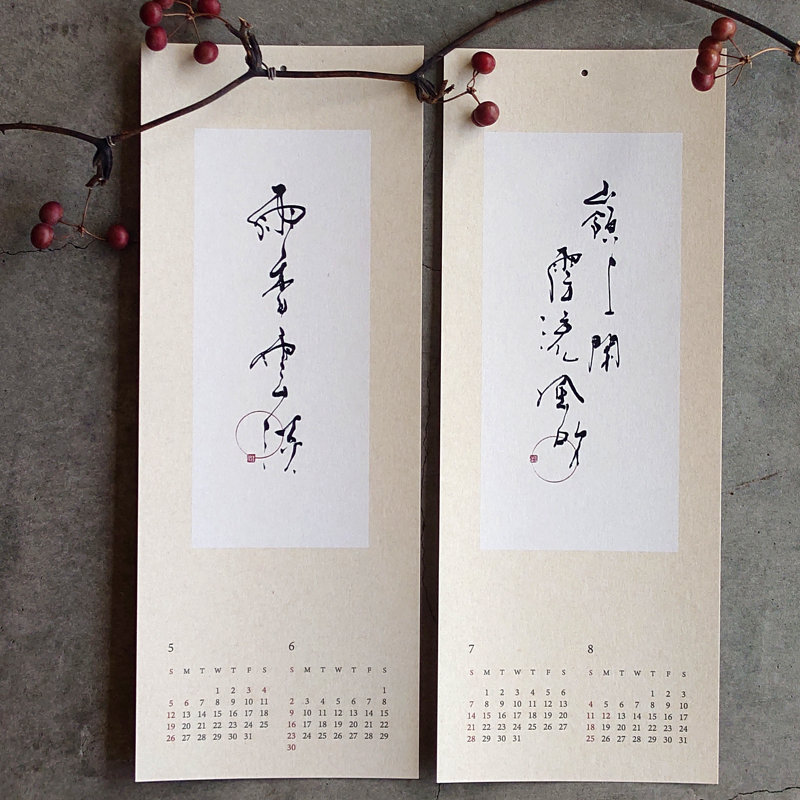 雨香雲淡
嶺上閑
雲流風
5
S M T W T F S
1 2 3 4
5 6 7 8 9 10 11
12 13 14 15 16 17 18
19 20 21 22 23 24 25
26 27 28 29 30 31
6
S M T W T F S
1
2 3 4 5 6 7 8
9 10 11 12 13 14 15
16 17 18 19 20 21 22
23 24 25 26 27 28 29
30
7
S M T W T F S
1 2 3 4 5 6
7 8 9 10 11 12 13
14 15 16 17 18 19 20
21 22 23 24 25 26 27
28 29 30 31
8
S M T W T F S
1 2 3
4 5 6 7 8 9 10
11 12 13 14 15 16 17
18 19 20 21 22 23 24
25 26 27 28 29 30 31